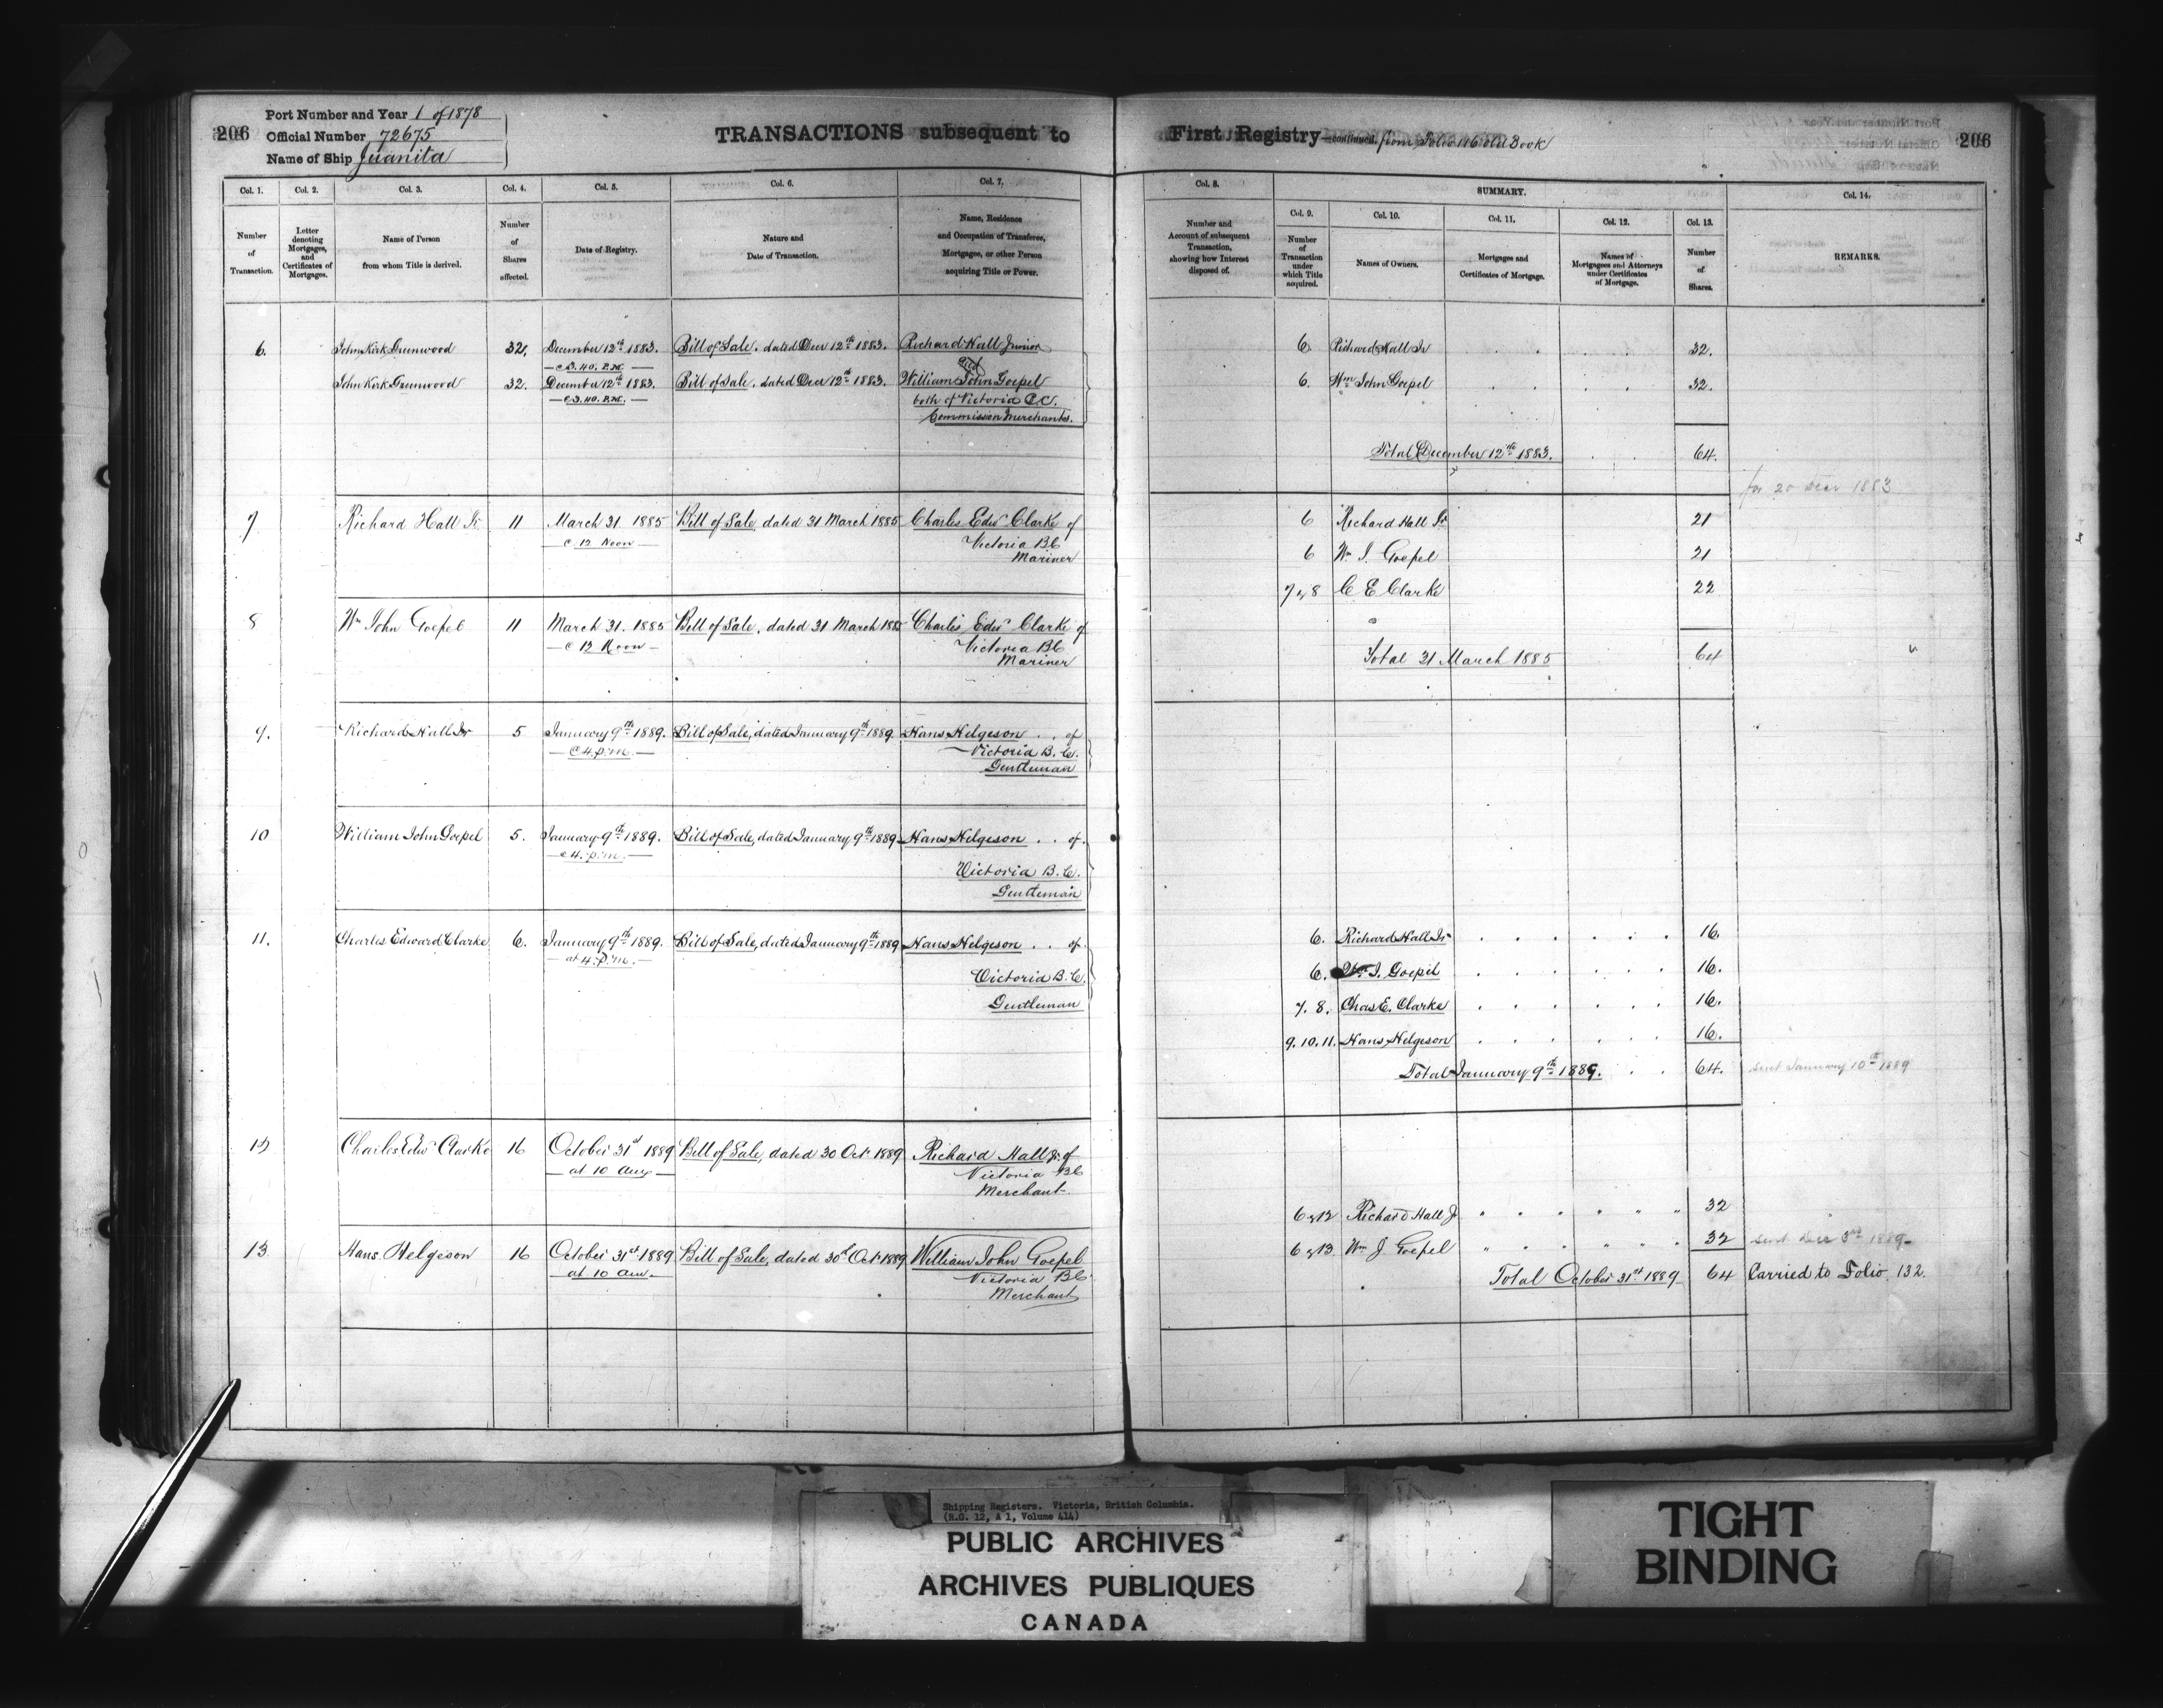 206
Port Number and Year 1 of 1878
Official Number 72675
Name of Ship Juanita
TRANSACTIONS subsequent to First Registry—continued. from Folio 116 old Book
206
Col. 1. Col. 2. Col. 3. Col. 4. Col. 5. Col. 6. Col. 7. Col. 8. SUMMARY. Col. 14.
Col. 9. Col. 10. Col. 11. Col. 12. Col. 13.
Number of Transaction.
Letter denoting Mortgages, and Certificates of Mortgages.
Name of Person from whom Title is derived.
Number of Shares affected.
Date of Registry.
Nature and Date of Transaction.
Name, Residence and Occupation of Transferee, Mortgagee, or other Person acquiring Title or Power.
Number and Account of subsequent Transaction, showing how Interest disposed of.
Number of Transaction under which Title acquired.
Names of Owners.
Mortgages and Certificates of Mortgage.
Names of Mortgagees and Attorneys under Certificates of Mortgage.
Number of Shares.
REMARKS.
6. John Kirk Greenwood 32. December 12th 1883. Bill of Sale. dated Decr 12th 1883. Richard Hall Junior
@ 3.40. P.M. and
John Kirk Greenwood 32. December 12th 1883. Bill of Sale. dated Decr 12th 1883. William John Goepel
@ 3.40. P.M. both of Victoria B.C.
Commission Merchants.
6. Richard Hall Jr 32.
6. Wm John Goepel 32.
Total December 12th 1883. 64.
for 20 Decr 1883
7 Richard Hall Jr 11 March 31 1885 Bill of Sale, dated 31 March 1885 Charles Edwd Clarke of
@ 12 Noon Victoria BC
Mariner
6 Richard Hall Jr 21
6 Wm J. Goepel 21
7 & 8 C E Clarke 22
8 Wm John Goepel 11 March 31. 1885 Bill of Sale, dated 31 March 1885 Charles Edwd Clarke of
@ 12 Noon Victoria BC
Mariner
Total 31 March 1885 64
9. Richard Hall Jr 5 January 9th 1889. Bill of Sale, dated January 9th 1889. Hans Helgeson . . of
@ 4. p.m. Victoria B.C.
Gentleman
10 William John Goepel 5. January 9th 1889. Bill of Sale, dated January 9th 1889 Hans Helgeson . . of
@ 4. p.m. Victoria B.C.
Gentleman
11. Charles Edward Clarke 6. January 9th 1889. Bill of Sale, dated January 9th 1889 Hans Helgeson . . of
at 4. p.m. Victoria B.C.
Gentleman
6. Richard Hall Jr 16.
6. Wm J. Goepel 16.
7. 8. Chas E. Clarke 16.
9. 10. 11. Hans Helgeson 16.
Total January 9th 1889. 64. sent January 10th 1889
12 Charles Edwd Clarke 16 October 31st 1889 Bill of Sale, dated 30 Octr 1889 Richard Hall Jr. of
at 10 am Victoria BC
Merchant
6 & 12 Richard Hall Jr 32
13 Hans Helgeson 16 October 31st 1889 Bill of Sale, dated 30th Octr 1889 William John Goepel
at 10 am. Victoria BC
Merchant
6 & 13 Wm J Goepel 32 sent Dec 3rd 1889
Total October 31st 1889 64 Carried to Folio 132.
Shipping Registers. Victoria, British Columbia.
(R.G. 12, A 1, Volume 414)
PUBLIC ARCHIVES
ARCHIVES PUBLIQUES
CANADA
TIGHT
BINDING